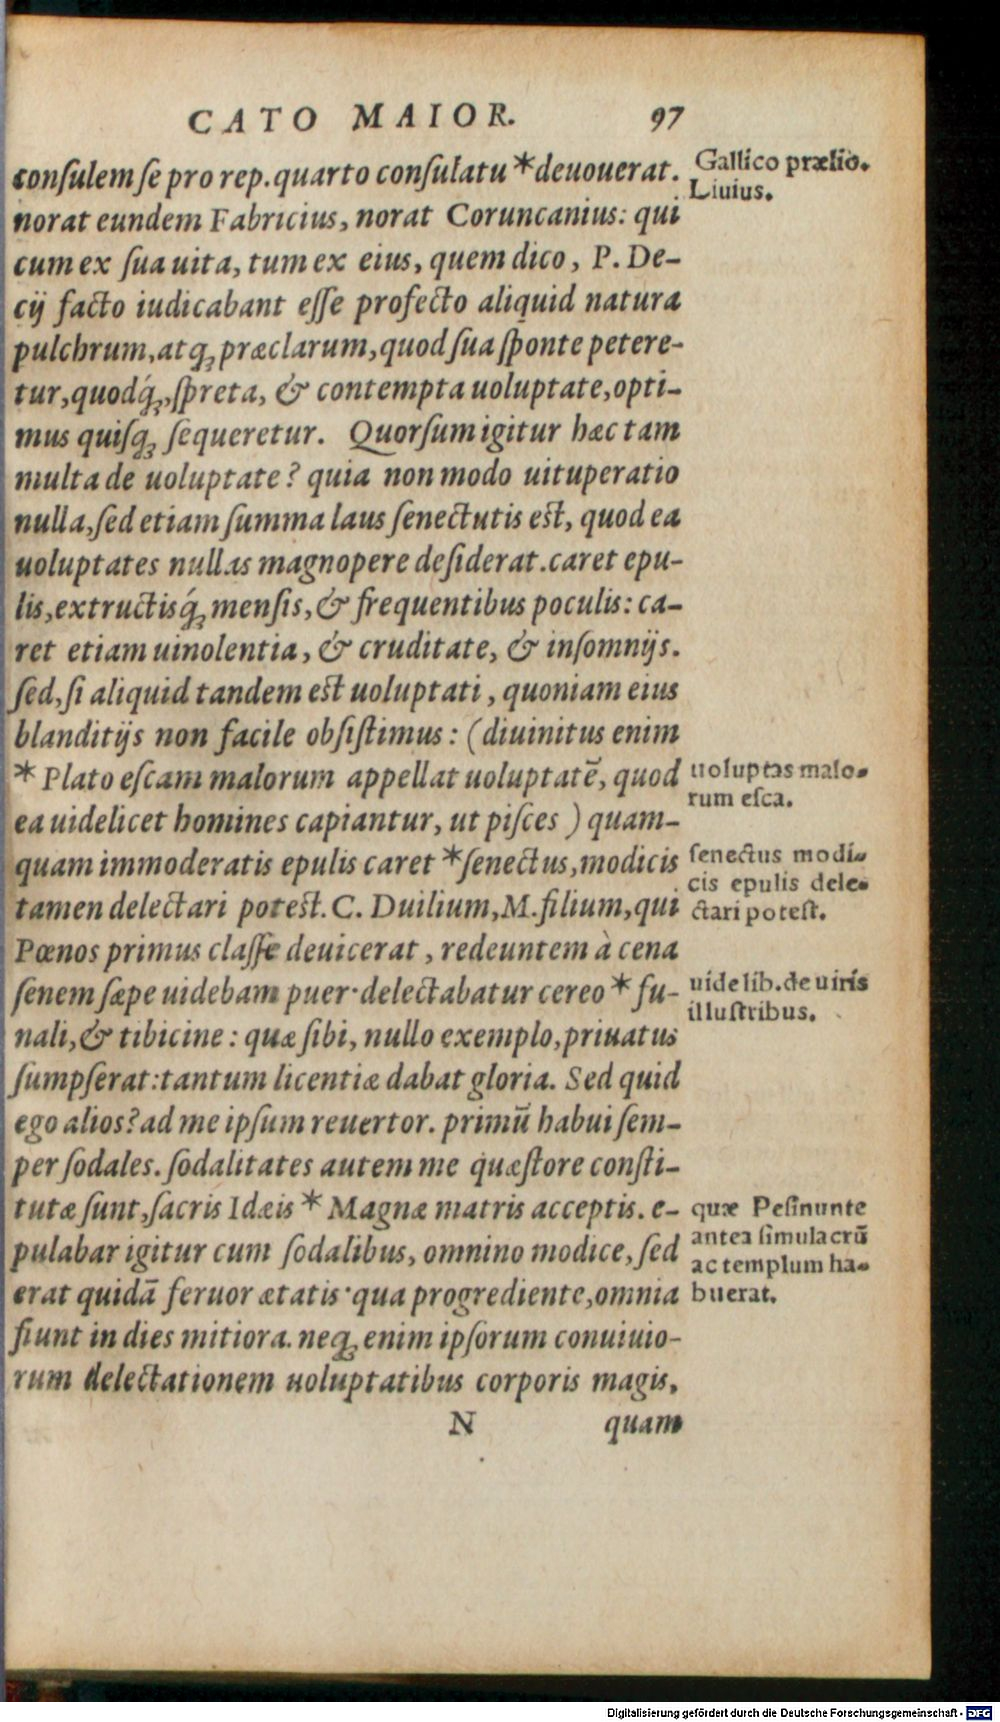 CATO MAIOR. 97
consulem se pro rep. quarto consulatu * deuouerat.
norat eundem Fabricius, norat Coruncanius: qui
cum ex sua uita, tum ex eius, quem dico, P. De-
cij facto iudicabant esse profecto aliquid natura
pulchrum, atq; præclarum, quod sua sponte petere-
tur, quodq́;, spreta, & contempta uoluptate, opti-
mus quisq; sequeretur. Quorsum igitur hæc tam
multa de uoluptate? quia non modo uituperatio
nulla, sed etiam summa laus senectutis est, quod ea
uoluptates nullas magnopere desiderat. caret epu-
lis, extructisq́; mensis, & frequentibus poculis: ca-
ret etiam uinolentia, & cruditate, & insomnijs.
sed, si aliquid tandem est uoluptati, quoniam eius
blanditijs non facile obsistimus: (diuinitus enim
* Plato escam malorum appellat uoluptatē, quod
ea uidelicet homines capiantur, ut pisces) quam-
quam immoderatis epulis caret * senectus, modicis
tamen delectari potest. C. Duilium, M. filium, qui
Pœnos primus classe deuicerat, redeuntem à cena
senem sæpe uidebam puer· delectabatur cereo * fu-
nali, & tibicine: quæ sibi, nullo exemplo, priuatus
sumpserat: tantum licentiæ dabat gloria. Sed quid
ego alios? ad me ipsum reuertor. primū habui sem-
per sodales. sodalitates autem me quæstore consti-
tutæ sunt, sacris Idæis * Magnæ matris acceptis. e-
pulabar igitur cum sodalibus, omnino modice, sed
erat quidā feruor ætatis· qua progrediente, omnia
fiunt in dies mitiora. neq; enim ipsorum conuiuio-
rum delectationem uoluptatibus corporis magis,
N quam
Gallico prælio.
Liuius.
uoluptas malo-
rum esca.
senectus modi-
cis epulis dele-
ctari potest.
uide lib. de uiris
illustribus.
quæ Pesinunte
antea simulacrū
ac templum ha-
buerat.
Digitalisierung gefördert durch die Deutsche Forschungsgemeinschaft - DFG